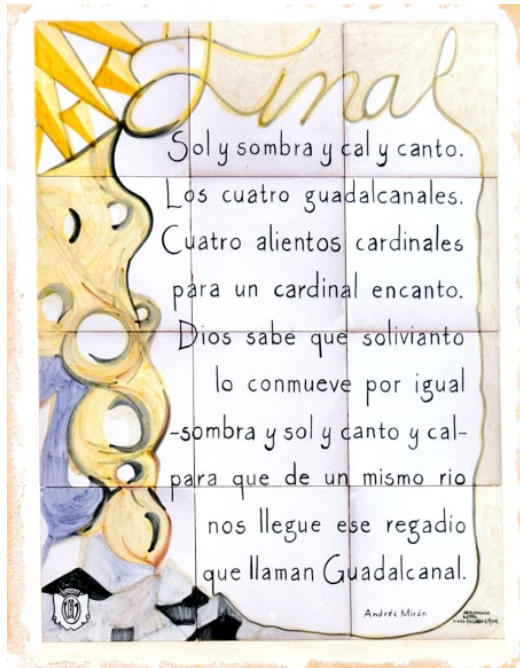 Final
Sol y sombra y cal y canto.
Los cuatro guadalcanales.
Cuatro alientos cardinales
para un cardinal encanto.
Dios sabe que solivianto
lo conmueve por igual
-sombra y sol y canto y cal-
para que de un mismo rio
nos llegue ese regadio
que llaman Guadalcanal.
Andrés Mirón